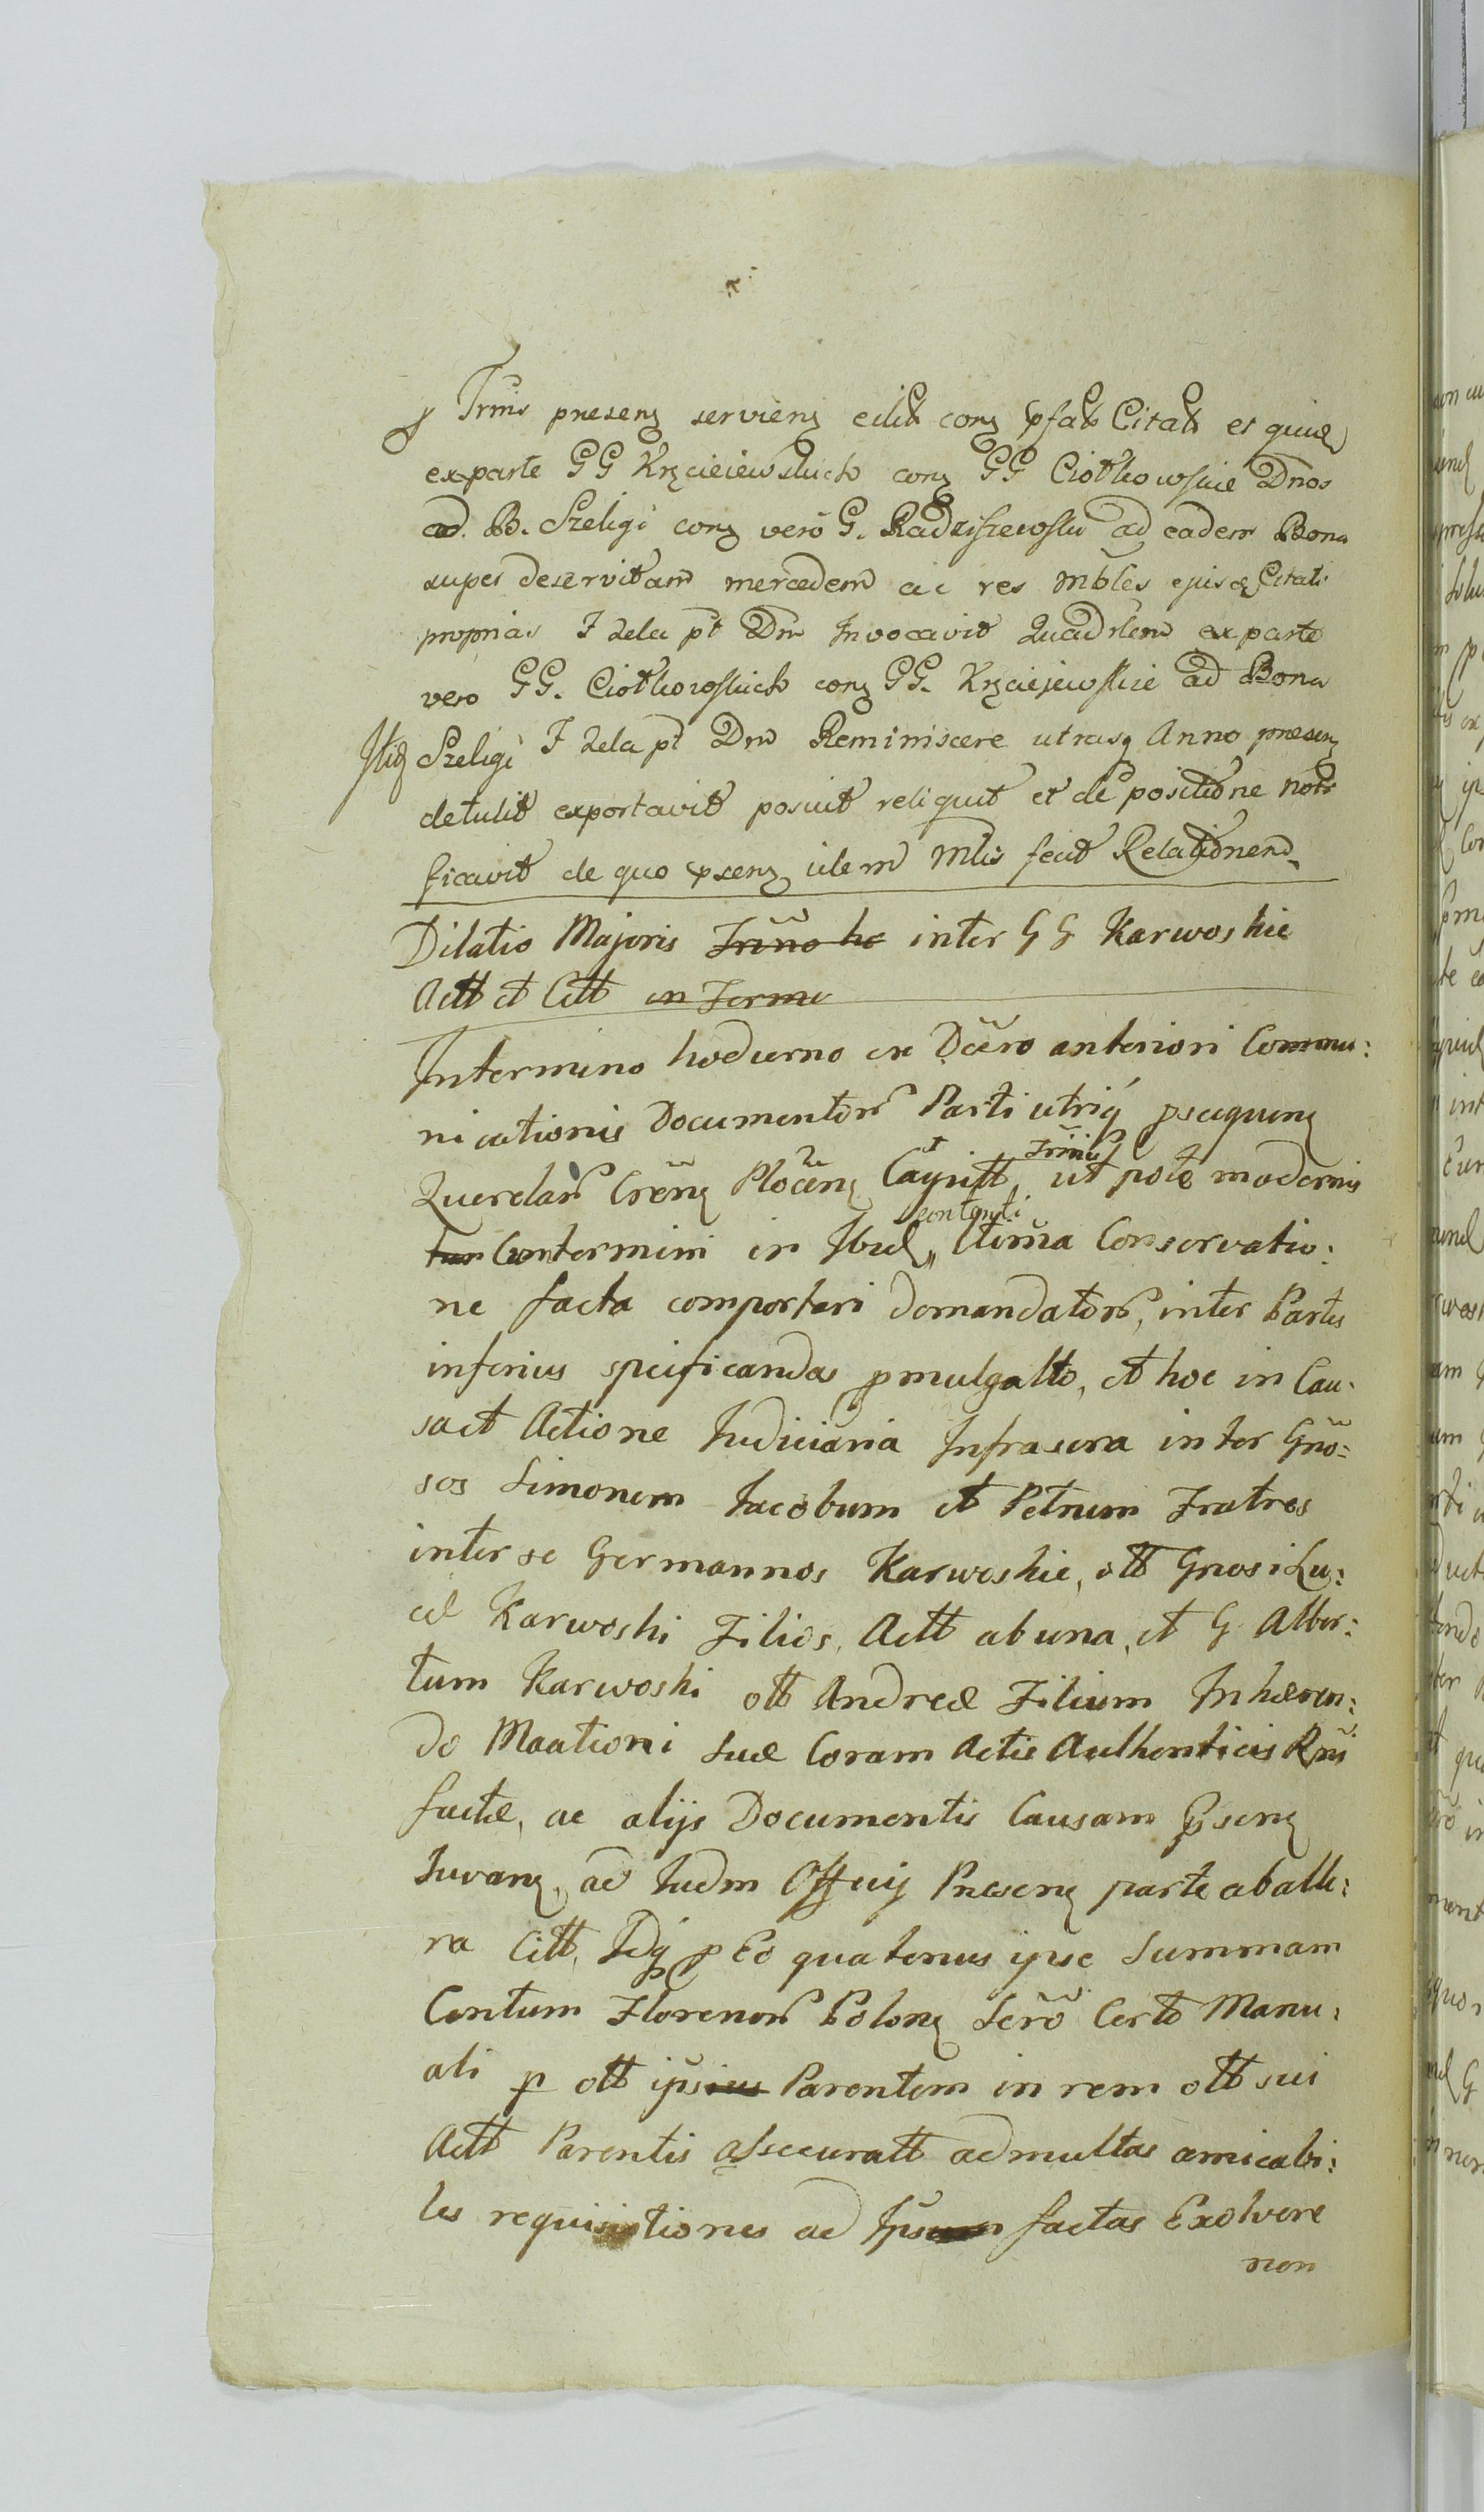 Trmis presens serviens edidt cons pfat Citat et quid
exparte GG Krzcieiewskich cons GG Ciothowskie Dnos
ad B. Szeligi cons vero G. Radziszewski ad eadem Bona
super deservitam mercedem ac res mbles ejusd Citati
proprias F 2da pt Dm Invocavit Quadrlem exparte
vero GG. Ciothowskich cons GG. Krzciejewskie ad Bona
Szeligi F 2da pt Dm Reminiscere utrasq Anno presen
detulit exportavit posuit reliquit et de positione noti
ficavit de quo psens idem Mlis fecit Relationem
Dilatio Majoris Trmo he inter GG Karwoskie
Actt et Citt in Termi
Intermino hodierno ex Dcro anteriori Commu:
nicationis Documentor Parti utriq psequens
Querelar Crens Plocens Capitt, et Trmis ut pote modernis
Contermini in Ibid,, contenti Attma Conservatio:
ne facta comportari demandator, inter Partes
inferius specificandas pmulgatto, et hoc in Cau:
sa et Actione Judiciaria Infrascra inter Gno:
sos Simonem Jacobum et Petrum Fratres
inter se Germannos Karwoskie, ott Gnosi Lu:
cæ Karwoski Filios, Actt ab una, et G. Alber:
tum Karwoski ott Andreæ Filium Inhæren:
do Maationi suæ Coram Actis Authenticis Rni
factæ, ac alijs Documentis Causam Psens
Juvans, ad Judm Officij Præsens parte ab alte:
ra Citt, Idq p Eo quatenus ipse Summam
Centum Florenor Polons Scro Certo Manu:
ali p ott ipsius Parentem in rem ott sui
Actt Parentis assecuratt ad multas amicabi:
les requisitiones ad Ipsum factas Exolvere
non